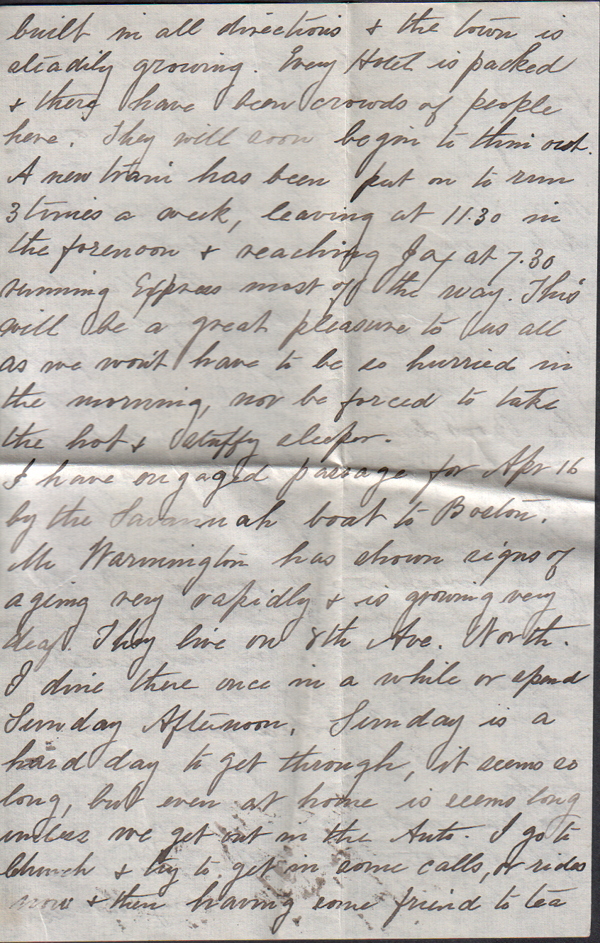 built in all directions & the town is
steadily growing. Every Hotel is packed
& there have been crowds of people
here. They will soon begin to thin out.
A new train has been put on to run
3 times a week, leaving at 11.30 in
the forenoon & reaching Jax at 7.30
running Express most of the way. This
will be a great pleasure to us all
as we won't have to be so hurried in
the morning, nor be forced to take
the hot & stuffy sleeper.
I have engaged passage for Apr 16
by the Savannah boat to Boston.
Mr Warmington has shown signs of
ageing very rapidly & is growing very
deaf. They live on 8th Ave. North.
I dine there once in a while or spend
Sunday Afternoon. Sunday is a
hard day to get through, it seems so
long, but even at home is seems long
unless we get out in the Auto. I go to
Church & try to get in some calls, or rides
now & then having some friend to tea